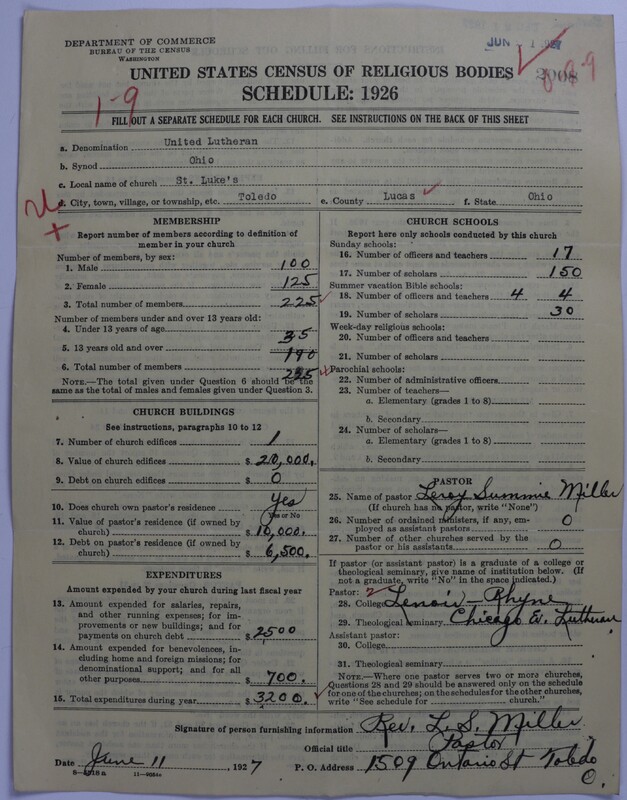 DEPARTMENT OF COMMERCE
BUREAU OF THE CENSUS
WASHINGTON
JUN 1 1927
UNITED STATES CENSUS OF RELIGIOUS BODIES
SCHEDULE: 1926
1-9
FILL OUT A SEPARATE SCHEDULE FOR EACH CHURCH. SEE INSTRUCTIONS ON THE BACK OF THIS SHEET
a. Denomination United Lutheran
b. Synod Ohio
c. Local name of church St. Luke's
d. City, town, village, or township, etc. Toledo e. County Lucas f. State Ohio
MEMBERSHIP
Report number of members according to definition of
member in your church
Number of members, by sex:
1. Male 100
2. Female 125
3. Total number of members 225
Number of members under and over 13 years old:
4. Under 13 years of age 35
5. 13 years old and over 190
6. Total number of members 225
NOTE.—The total given under Question 6 should be the
same as the total of males and females given under Question 3.
CHURCH BUILDINGS
See instructions, paragraphs 10 to 12
7. Number of church edifices 1
8. Value of church edifices $ 20,000.
9. Debt on church edifices $ 0
10. Does church own pastor's residence yes
Yes or No
11. Value of pastor's residence (if owned by
church) $ 10,000.
12. Debt on pastor's residence (if owned by
church) $ 6,500.
EXPENDITURES
Amount expended by your church during last fiscal year
13. Amount expended for salaries, repairs,
and other running expenses; for im-
provements or new buildings; and for
payments on church debt $ 2500
14. Amount expended for benevolences, in-
cluding home and foreign missions; for
denominational support; and for all
other purposes $ 700.
15. Total expenditures during year $ 3200.
CHURCH SCHOOLS
Report here only schools conducted by this church
Sunday schools:
16. Number of officers and teachers 17
17. Number of scholars 150
Summer vacation Bible schools:
18. Number of officers and teachers 4 4
19. Number of scholars 30
Week-day religious schools:
20. Number of officers and teachers
21. Number of scholars
Parochial schools:
22. Number of administrative officers
23. Number of teachers—
a. Elementary (grades 1 to 8)
b. Secondary
24. Number of scholars—
a. Elementary (grades 1 to 8)
b. Secondary
PASTOR
25. Name of pastor Leroy Summie Miller
(If church has no pastor, write "None")
26. Number of ordained ministers, if any, em-
ployed as assistant pastors 0
27. Number of other churches served by the
pastor or his assistants 0
If pastor (or assistant pastor) is a graduate of a college or
theological seminary, give name of institution below. (If
not a graduate, write "No" in the space indicated.)
Pastor:
28. College Lenoir-Rhyne
29. Theological seminary Chicago Lutheran
Assistant pastor:
30. College
31. Theological seminary
NOTE.—Where one pastor serves two or more churches,
Questions 28 and 29 should be answered only on the schedule
for one of the churches; on the schedules for the other churches,
write "See schedule for church."
Signature of person furnishing information Rev. L. S. Miller
Official title Pastor
Date June 11, 1927 P. O. Address 1509 Ontario St Toledo
O.